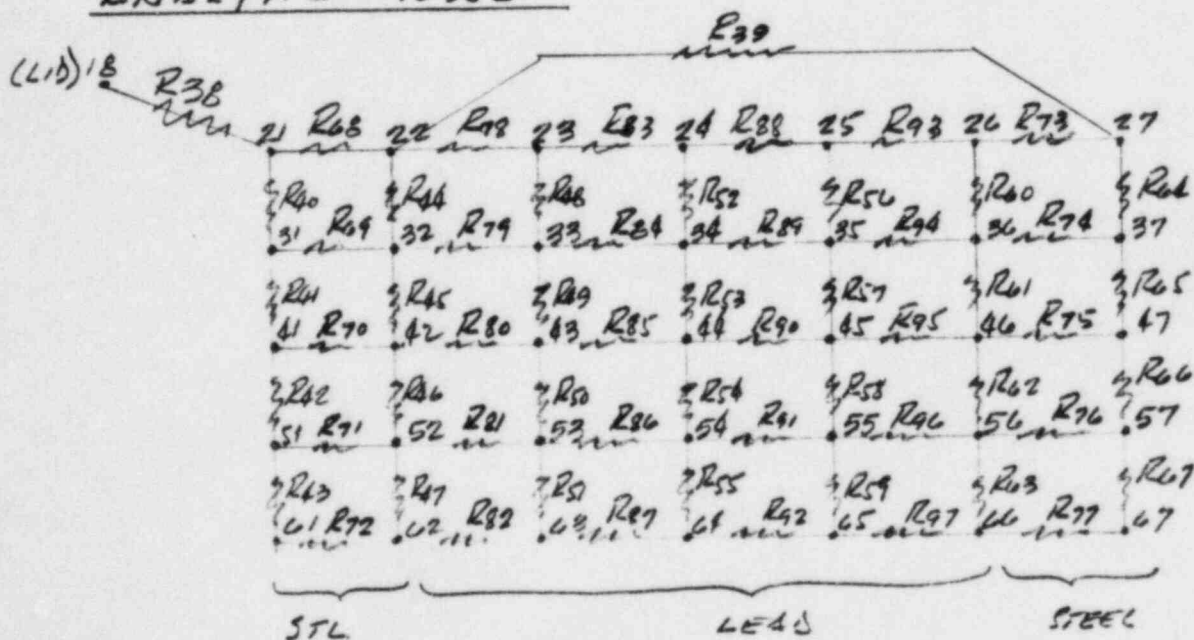 R39
(LID) 18 R38
21 R68 22 R78 23 R83 24 R88 25 R93 26 R73 27
R40 R44 R48 R52 R56 R60 R64
31 R69 32 R79 33 R84 34 R89 35 R94 36 R74 37
R41 R45 R49 R53 R57 R61 R65
41 R70 42 R80 43 R85 44 R90 45 R95 46 R75 47
R42 R46 R50 R54 R58 R62 R66
51 R71 52 R81 53 R86 54 R91 55 R96 56 R76 57
R43 R47 R51 R55 R59 R63 R67
61 R72 62 R82 63 R87 64 R92 65 R97 66 R77 67
STL LEAD STEEL